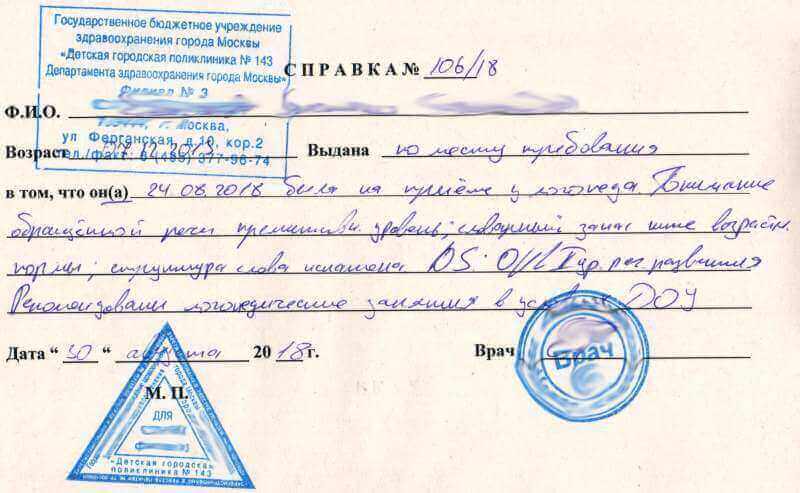 Государственное бюджетное учреждение
здравоохранения города Москвы
«Детская городская поликлиника № 143
Департамента здравоохранения города Москвы»
Филиал № 3
г. Москва,
ул Ферганская, д.10, кор.2
тел./факс: 8 (495) 377-96-74
СПРАВКА № 106/18
Ф.И.О.
Возраст Выдана по месту требования
в том, что он(а) 24.08.2018 была на приёме у логопеда. Понимание
обращённой речи примитивн. уровень; словарный запас ниже возрастн.
нормы; структура слова искажена. DS: ОНР I ур. реч. развития
Рекомендованы логопедические занятия в условиях ДОУ
Дата “ 30 “ августа 2018 г. Врач
Врач
М. П.
ДЛЯ
«Детская городская
поликлиника № 143